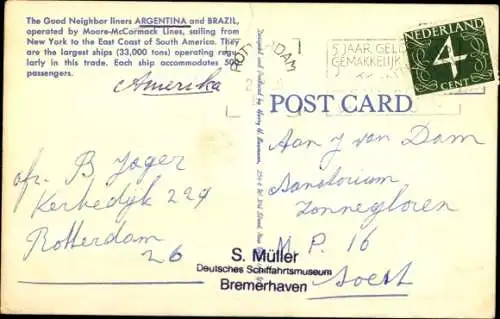 The Good Neighbor liners ARGENTINA and BRAZIL,
operated by Moore-McCormack Lines, sailing from
New York to the East Coast of South America. They
are the largest ships (33,000 tons) operating regu-
larly in this trade. Each ship accommodates
passengers.
Amerika
ROTTERDAM
5 JAAR GELD
GEMAKKELIJK
NEDERLAND
4
CENT
POST CARD
afz. B Jager
Kerkedijk 229
Rotterdam
26
Aan J van Dam
Sanatorium
Zonnegloren
M. P. 16
Soest
S. Müller
Deutsches Schiffahrtsmuseum
Bremerhaven